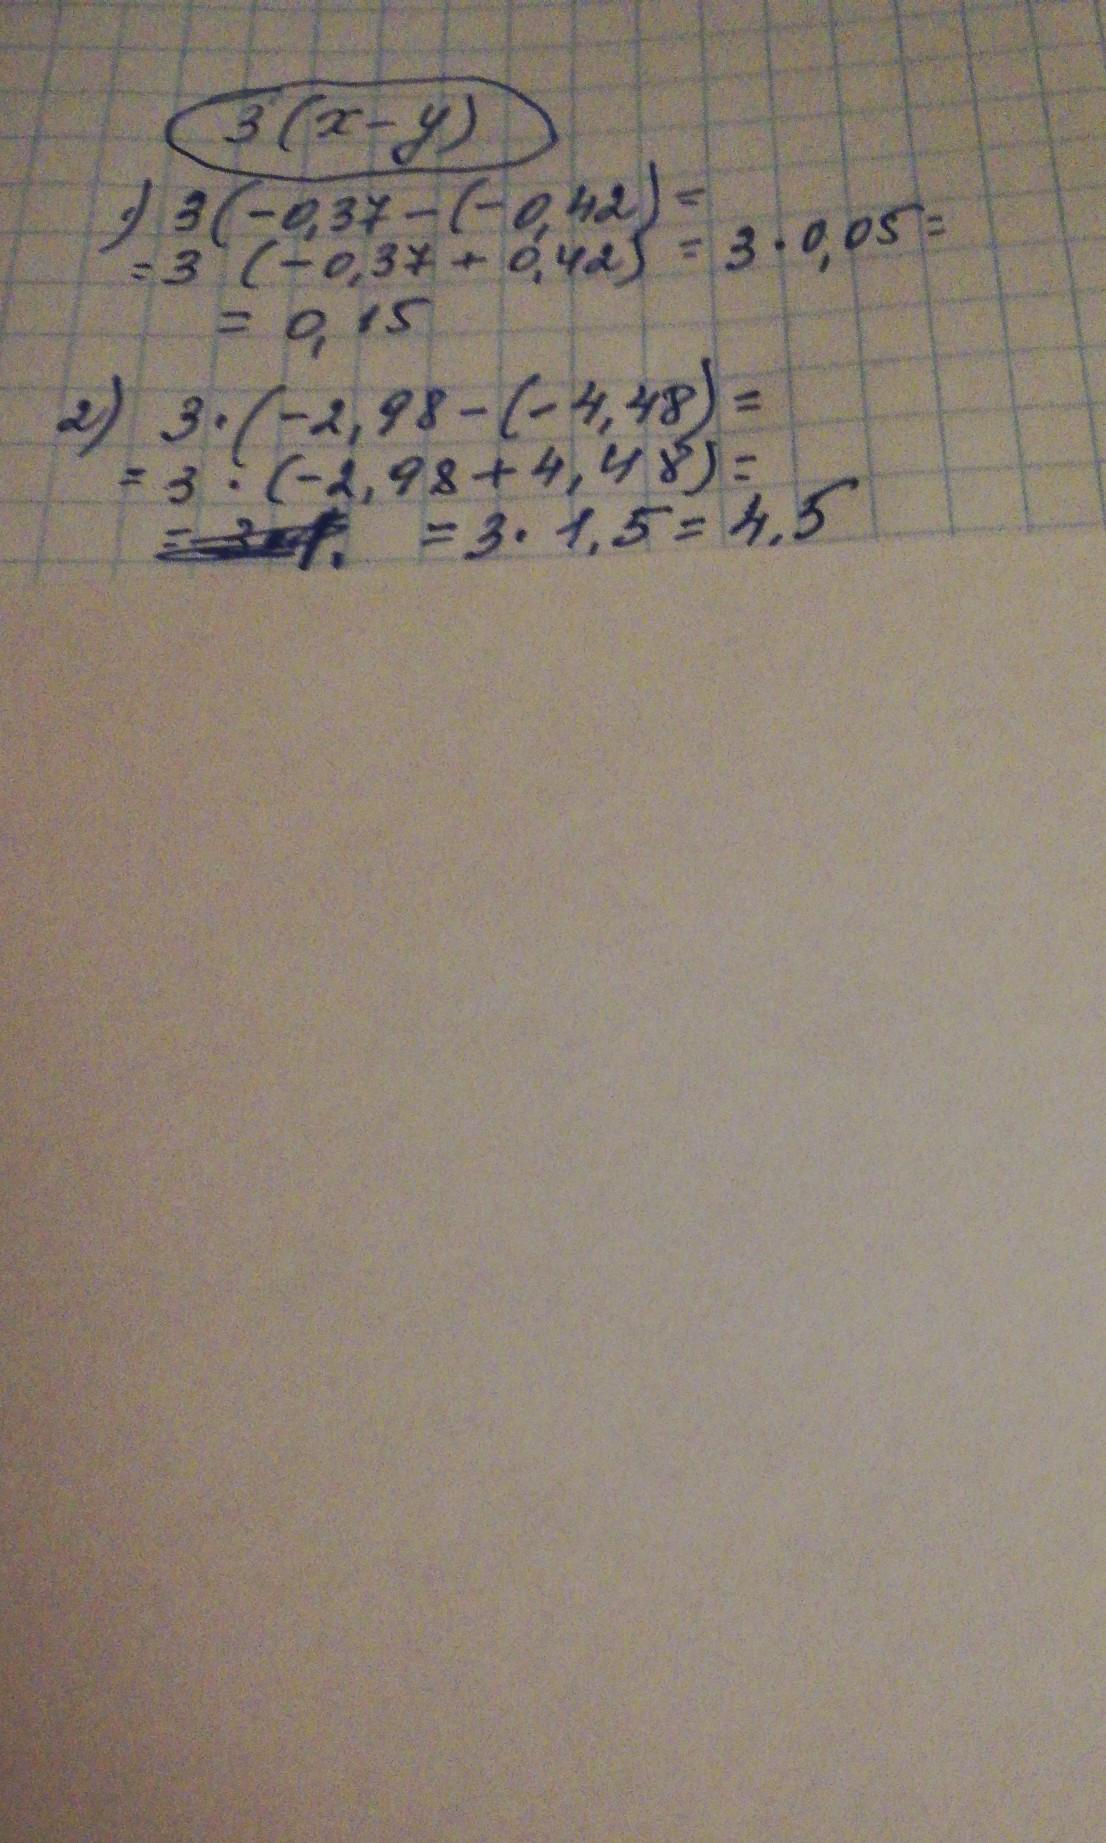 3(x-y)
1) 3(-0,37-(-0,42)=
=3 (-0,37+0,42) = 3·0,05=
= 0,15
2) 3·(-2,98-(-4,48)=
=3·(-2,98+4,48)=
=3·1,5=4,5